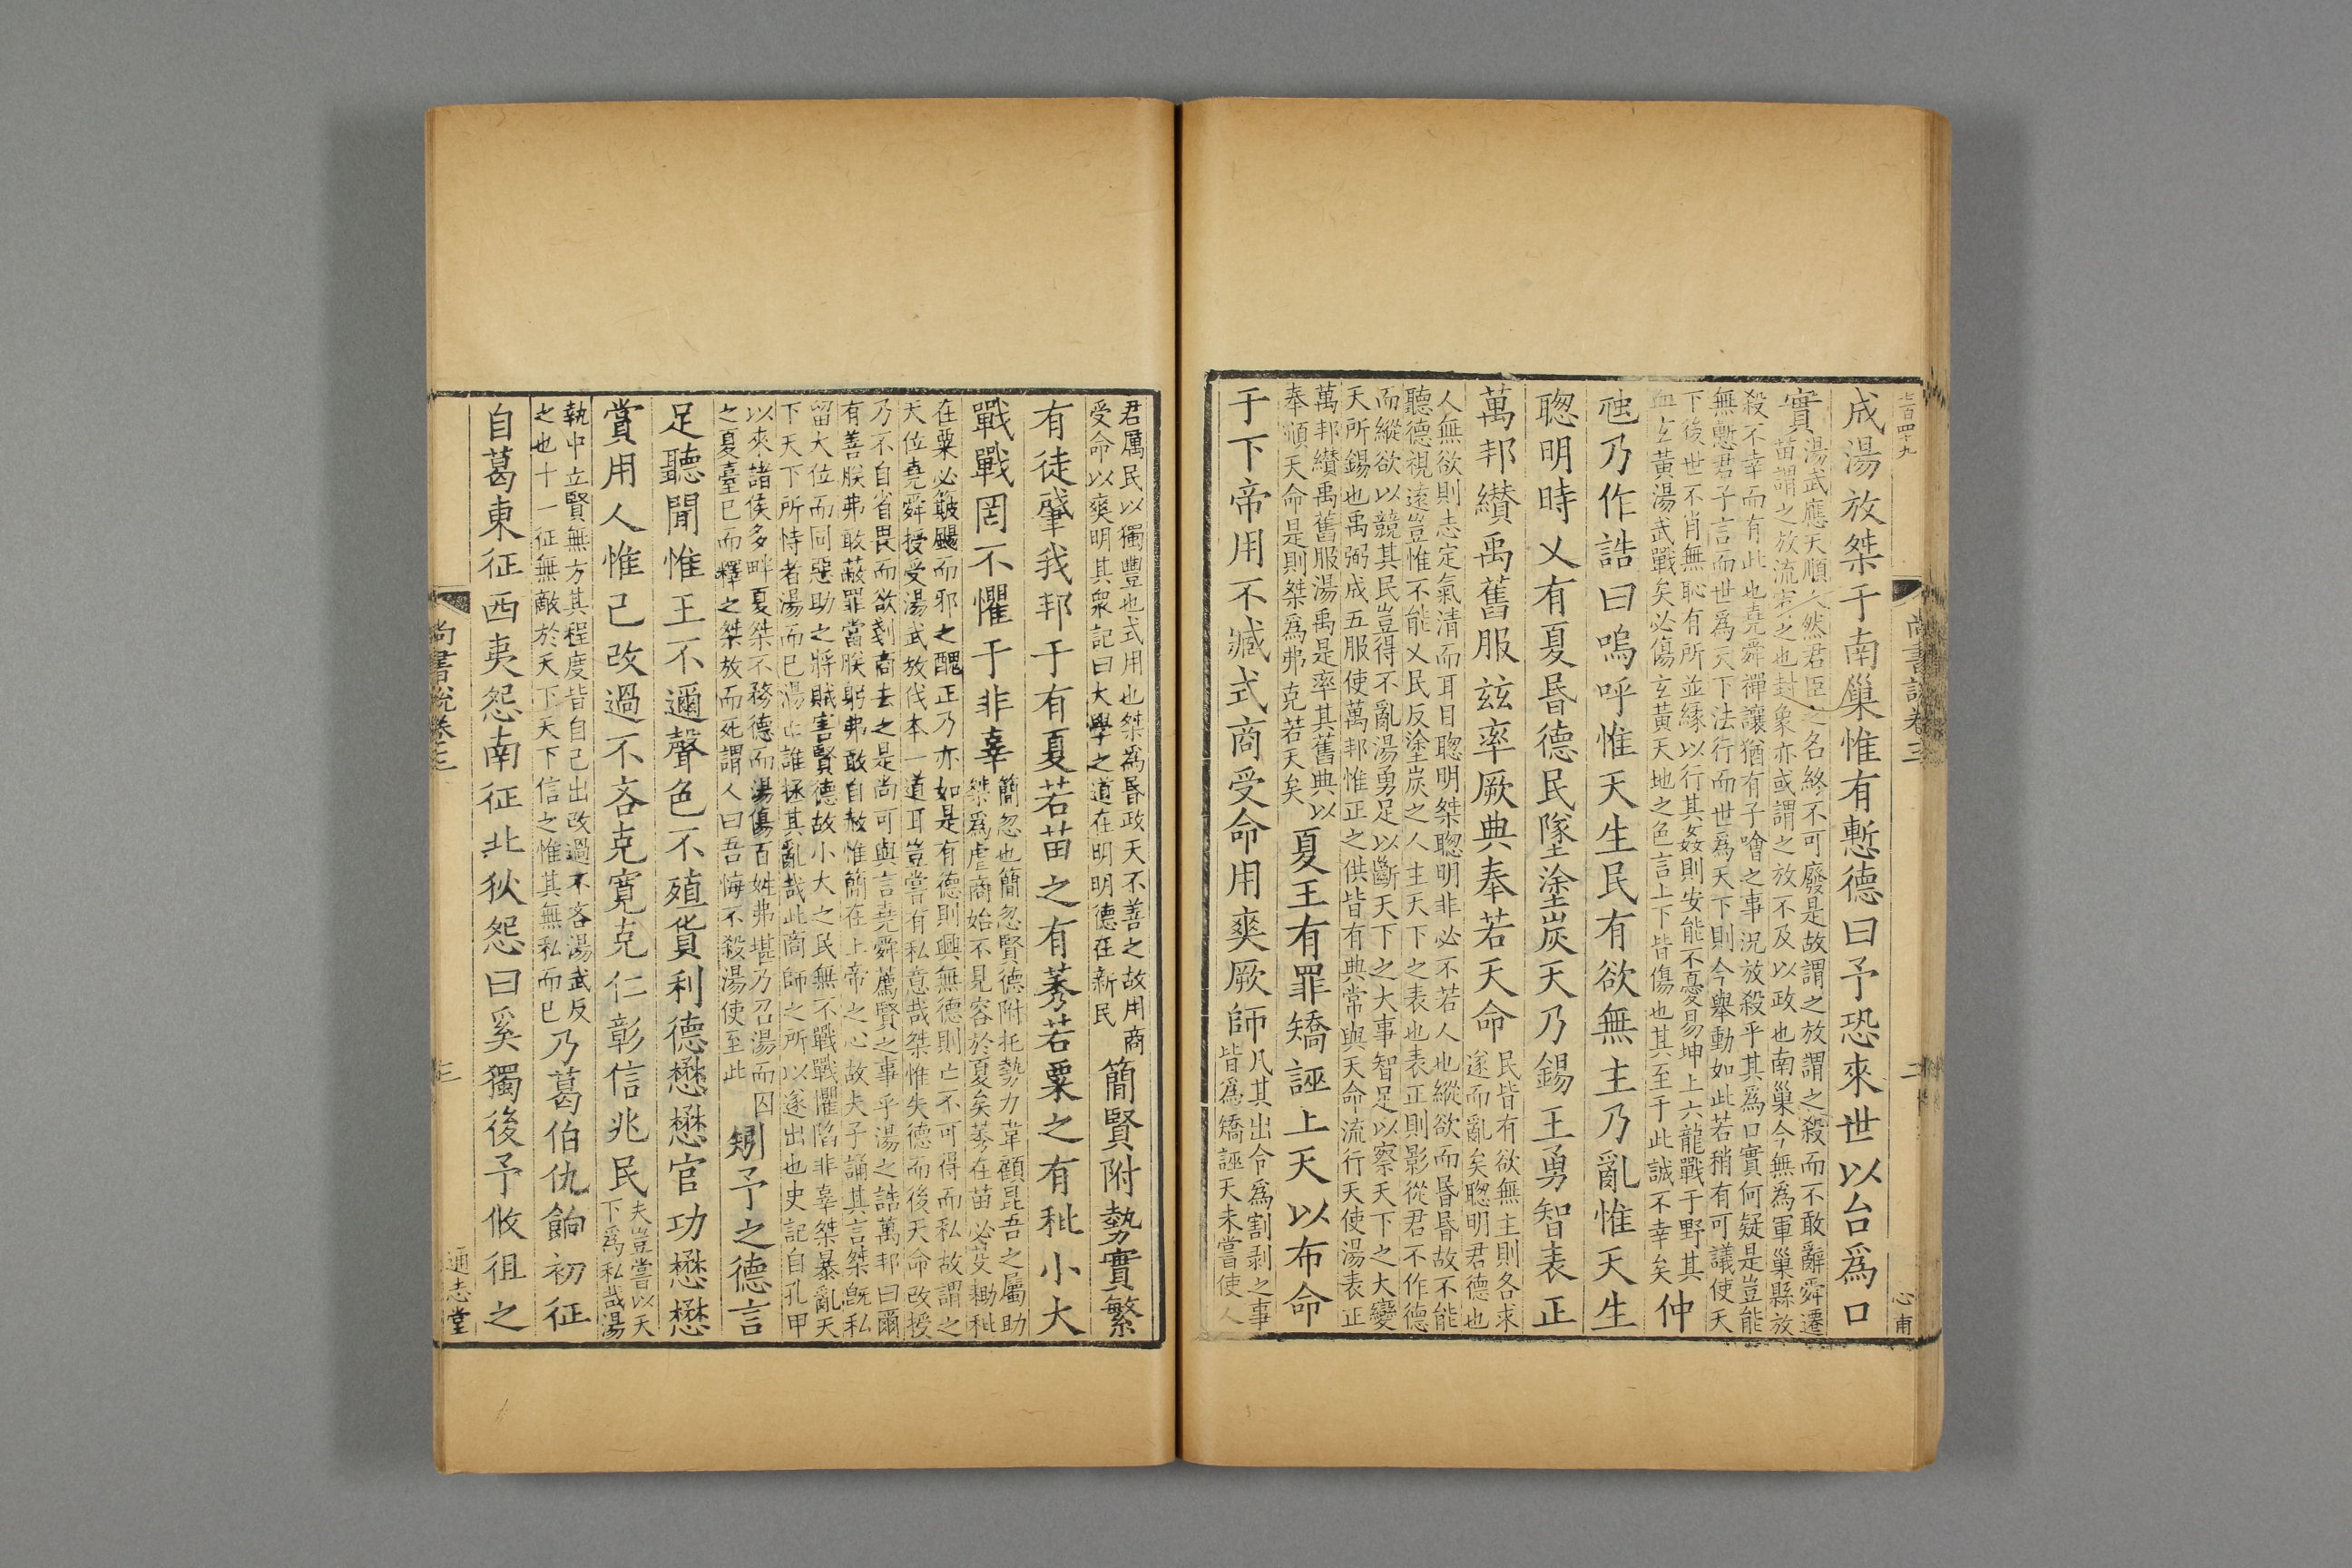 七百四十九
尚書說卷三
二
心甫
成湯放桀于南巢惟有慙德曰予恐來世以台爲口
實
湯武應天順人然君臣之名終不可廢是故謂之放謂之殺而不敢辭舜遷
苗謂之放流宗之也封象亦或謂之放不及以政也南巢今無爲軍巢縣放
殺不幸而有此也堯舜禪讓猶有子噲之事況放殺乎其爲口實何疑是豈能
無慙君子言而世爲天下法行而世爲天下則今舉動如此若稍有可議使天
下後世不肖無恥有所並緣以行其姦則安能不憂易坤上六龍戰于野其
血玄黃湯武戰矣必傷玄黃天地之色言上下皆傷也其至于此誠不幸矣
仲
虺乃作誥曰嗚呼惟天生民有欲無主乃亂惟天生
聰明時乂有夏昏德民墜塗炭天乃錫王勇智表正
萬邦纘禹舊服茲率厥典奉若天命
民皆有欲無主則各求
遂而亂矣聰明君德也
人無欲則志定氣清而耳目聰明桀聰明非必不若人也縱欲而昏昏故不能
聽德視遠豈惟不能乂民反塗炭之人主天下之表也表正則影從君不作德
而縱欲以競其民豈得不亂湯勇足以斷天下之大事智足以察天下之大變
天所錫也禹弼成五服使萬邦惟正之供皆有典常與天命流行天使湯表正
萬邦纘禹舊服湯禹是率其舊典以
奉順天命是則桀爲弗克若天矣
夏王有罪矯誣上天以布命
于下帝用不臧式商受命用爽厥師
凡其出令爲割剥之事
皆爲矯誣天未嘗使人
君厲民以獨豐也式用也桀爲昏政天不善之故用商
受命以爽明其衆記曰大學之道在明明德在新民
簡賢附勢實繁
有徒肇我邦于有夏若苗之有莠若粟之有秕小大
戰戰罔不懼于非辜
簡忽也簡忽賢德附托勢力韋顧昆吾之屬助
桀爲虐商始不見容於夏矣莠在苗必芟鋤秕
在粟必簸颺而邪之醜正乃亦如是有德則興無德則亡不可得而私故謂之
天位堯舜授受湯武放伐本一道耳豈嘗有私意哉桀惟失德而後天命改授
乃不自省畏而欲剗商去之是尚可與言堯舜薦賢之事乎湯之誥萬邦曰爾
有善朕弗敢蔽罪當朕躬弗敢自赦惟簡在上帝之心故夫子誦其言桀旣私
留大位而同惡助之將賊害賢德故小大之民無不戰戰懼陷非辜桀暴亂天
下天下所恃者湯而已湯亡誰拯其亂哉此商師之所以遂出也史記自孔甲
以來諸侯多畔夏桀不務德而湯傷百姓弗堪乃召湯而囚
之夏臺已而釋之桀放而死謂人曰吾悔不殺湯使至此
矧予之德言
足聽聞惟王不邇聲色不殖貨利德懋懋官功懋懋
賞用人惟己改過不吝克寬克仁彰信兆民
夫豈嘗以天
下爲私哉湯
執中立賢無方其程度皆自己出改過不吝湯武反
之也十一征無敵於天下天下信之惟其無私而已
乃葛伯仇餉初征
自葛東征西夷怨南征北狄怨曰奚獨後予攸徂之
尚書說卷三
三
通志堂